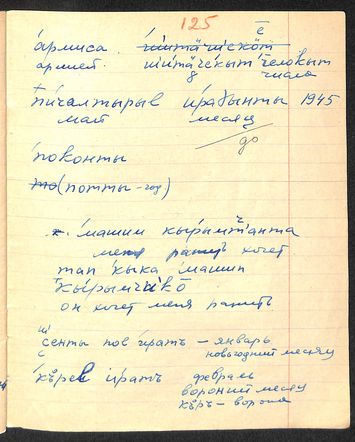 125
а́рмиса.
армией. человыт
8 числа
пичалтырыв ирадынты 1945
май месяц
до
поконты
(потты - год)
машим кырымтанта
меня ранить хочет
тап кыка машип
кырымчикō
он хочет меня ранить
сенты пов ира̄тъ - январь
новогодний месяц
кърев ира̄тъ февраль
вороний месяц
къръ - ворона